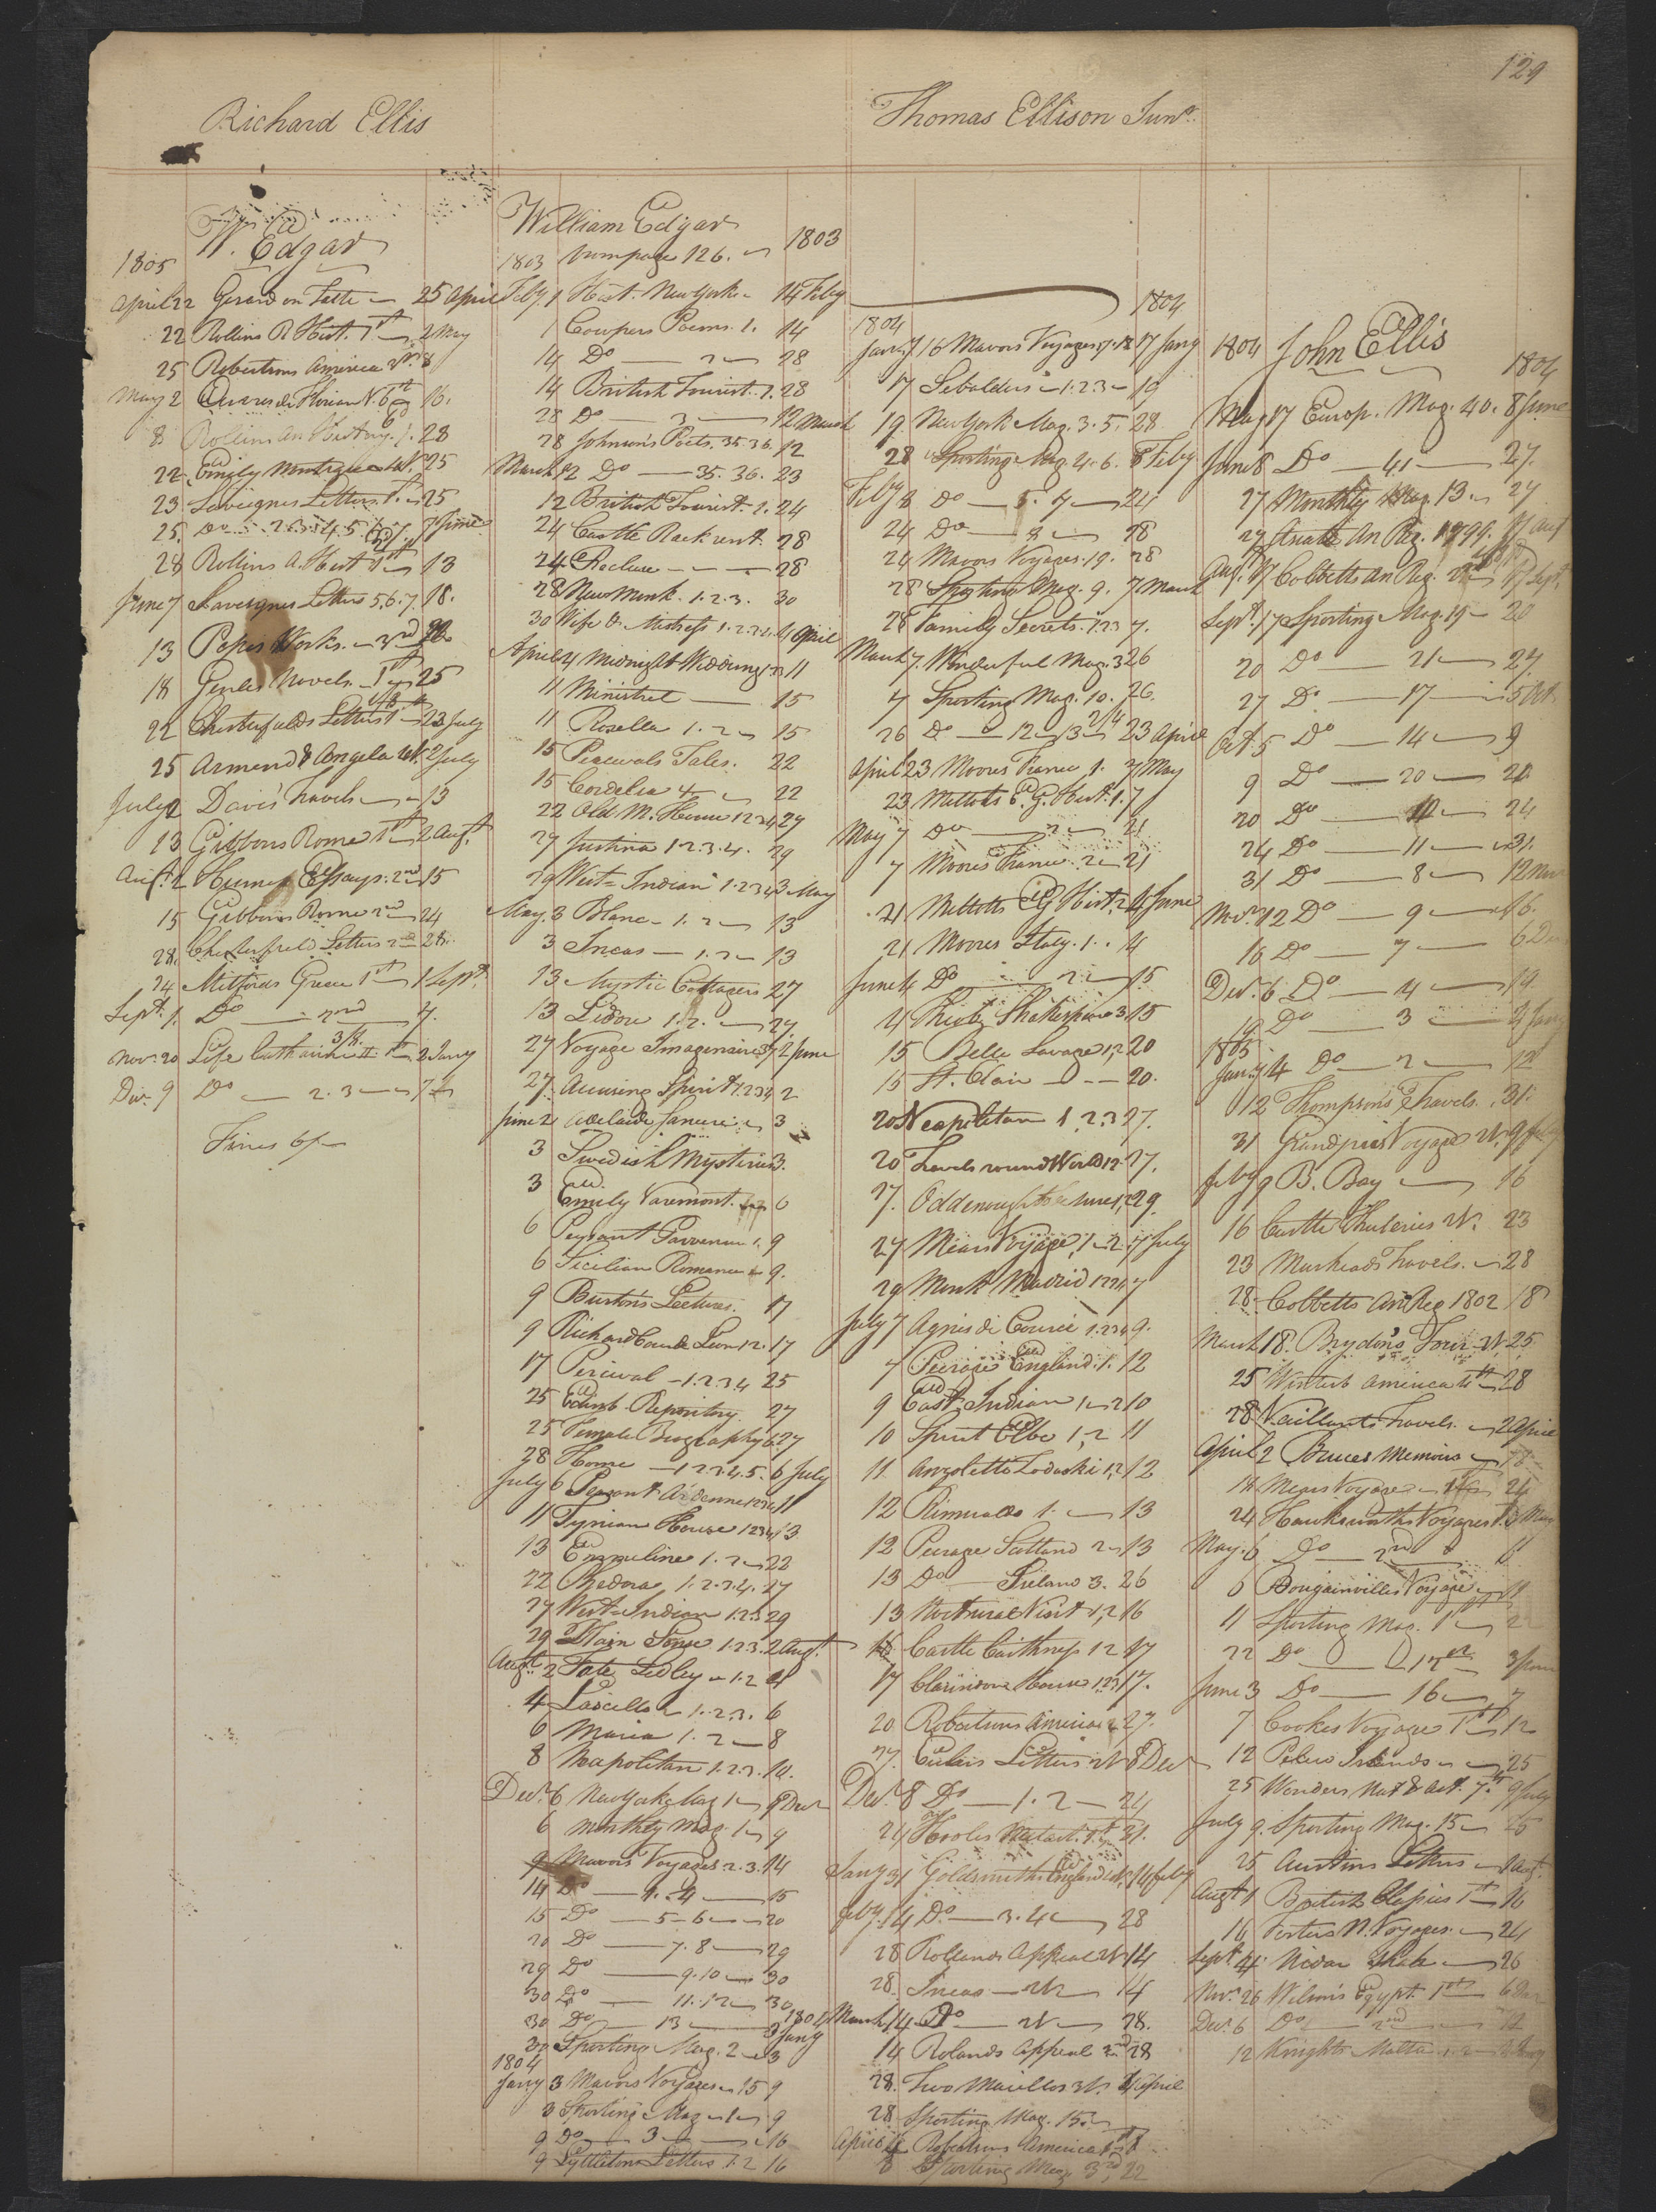 129
Richard Ellis
Thomas Ellison Junr.
W. Edgar
1805
April 22 Gerard on Taste 25 April
22 Rollins R Hist. 1st 2 May
25 Robertsons America 2nd 8
May 2 Ouvres de Florian N. 6th 16.
8 Rollins An History. 1. 28
22 Emily Montague 25
23 Sevignes Letters 1. 25
25. Do 2.3.4.5. 7. 7 June
28 Rollins A. Hist 1st 13
June 7 Saveignes Letters 5.6.7. 18.
13 Popes Works. 3rd
18 Genlis Novels. 1st 25
22 Chesterfields Letters 1st 23 July
25 Armend & Angela 2 July
July 2 Davis Travels 13
13 Gibbons Rome 1st 2 Augt.
Augt. 2 Humes Essays. 2nd 15
15 Gibbons Rome 2nd 24
28. Chesterfield Letters 2 28.
24 Mitfords Greece 1st 1 Sept.
Sept. 1. Do 2nd 7.
Nov. 20 Life Catharine II. 1st 2 Jany
Dec. 9 Do 2.3
Fines 6/
William Edgar
1803 from page 126. 1803
Feby. 1 Hist. New York 14 Feby
1 Cowpers Poems. 1. 14
14 Do 2 28
14 British Tourist. 1. 28
28 Do 2 12 March
28 Johnson's Poets. 35.36. 12
March 12 Do 35.36. 23
12 British Tourist. 2. 24
24 Castle Rackrent. 28
24 Recluse 28
28 New Monk. 1.2.3. 30
30 Wife & Mistress 1.2.3.4. 4 April
April 4 Midnight Wedding 11
11 Minstrel 15
11 Rosella 1.2 15
15 Percivals Tales. 22
15 Cordelia 22
22 Old M. House 1234 27
27 Justina 1.2.3.4. 29
29 West-Indian 1.234 3 May
May. 3 Blanc 1.2 13
3 Incas 1.2 13
13 Mystic Cottagers 27
13 Lidore 1.2. 27.
27 Voyage Imaginaire 37 2 June
27. Accusing Spirit 1.234 2
June 2 Adelaide 3
3 Swedish Mysteries 3.
3 Emily Varemont. 6
6 Peasant 1. 9
6 Sicilian Romance 9.
9 Burton's Lectures. 17
9 Richard Coeur de Lion 1 2. 17
17 Percival 1.2.3.4 25
25 Edinb. Repository 27
25 Female Biography 6 27
28 Home 1.2.3.4.5. 6 July
July 6 Peasant Ardenne 1234 11
11 Tynian House 1234 13
13 Emmeline 1.2 22
22 Medora 1.2.3.4. 27
27 West-Indian 1.2.3 29
29 Plain Sense 1.2.3. 2 Augt.
Augt. 2 Fate Sedley 1.2 4
4 Lascelles 1.2.3. 6
6 Maria 1.2 8
8 Neapolitan 1.2.3. 10.
Decr. 6 New York Mag 1 9 Decr
6 Monthly Mag. 1 9
9 Mavors Voyages 2.3. 14
14 Do 1. 4 15
15 Do 5. 6 20
20 Do 7. 8 29
29 Do 9.10 30
30 Do 11.12 30
30 Do 13 1804 3 Jany
30 Sporting Mag. 2 3
1804
Jany 3 Mavors Voyages 15 9
3 Sporting Mag 1 9
9 Do 3 16
9 Lyttletons Letters 1.2 16
1804 1804
Jany. 16 Mavors Voyages. 17.18 17 Jany
17 Sebaldus 1.2.3 19
19 New York Mag. 3.5. 28
28 Sporting Mag. 4.6. 8 Feby
Feby 8 Do 5. 7 24
24 Do 8 28
24 Mavors Voyages. 19. 28
28 Sporting Mag. 9. 7 March
28 Family Secrets. 1.2.3 7.
March 7. Wonderful Mag. 3 26
7 Sporting Mag. 10. 26.
26 Do 12 13 2/4 23 April
April 23 Moores France 1. 7 May
23 Millotts E. G. Hist. 1. 7
May 7 Do 2 21
7 Moores France. 2 21
21 Millotts E G Hist. 2 4 June
21 Moores Italy. 1. 4
June 4 Do 2 15
4 Shakespeare 3 15
15 Belle Savage 1,2 20
15 St. Clair 20.
20 Neapolitan 1.2.3 27.
20 Travels round World 12. 27.
27. Odd enough to be sure 1,2 29.
27 Mears Voyage. 1 2 7 July
29 Monk Madrid 1234 7
July 7 Agnes di Courci 1.234 9.
7 Peerages England. 1. 12
9 East-Indian 1 2 10
10 Spirit Elbe 1,2 11
11. Anzoletto Ladoski 1,2 12
12 Rimualdo 1. 13
12 Peerage Scotland 2 13
13 Do Ireland 3. 26
13 Nocturnal Visit 1,2 16
16 Castle Caithness 1 2 17
17 Clarindon House 1,2,3 17.
20 Robertsons America 27.
27. Eulers Letters 8 Decr
Decr. 8 Do 1. 2 24
24 Hooles Metast. 1st 21.
Jany 31 Goldsmiths England 14 Feby
Feby. 14 Do. 3.4 28
28 Rollands Appeal 14
28. Incas 14
March 14 Do 28.
14 Rolands Appeal 2nd 28
28. Two Marillos 4 April
28 Sporting Mag. 15.
April 4 Robertsons America 1st 8
8 Sporting Mag. 3rd. 22
1804 John Ellis 1804
May 17 Europ. Mag. 40. 8 June
June 8 Do 41 27.
27 Monthly Mag. 13 27
27 Asiatic An Reg. 1799. 17 Augt
Augt. 17 Cobbetts An Reg. 2nd 17 Sept.
Sept. 17 Sporting Mag. 19 20
20 Do 21 27
27 Do 17 5 Oct.
Oct. 5 Do 14 9
9 Do 20 20
20 Do 12 24
24 Do 11 31.
31 Do 8 12 Nov
Nov. 12 Do 9 16.
16 Do 7 6 Dec
Decr. 6 Do 4 19
19 Do 3 4 Jany
1805
Jany 4 Do 2 12
12 Thompson's Travels. 31.
31 Grandpres Voyage 9 Feby
Feby 9 B. Bay 16
16 Castle Thuleries 23
23 Muirheads Travels. 28
28 Cobbetts An Reg 1802 18
March 18. Brydon's Tour 25
25 Winterb America 4th 28
28 Vaillants Travels. 2 April
April 2 Bruces Memoirs 18
18 Mears Voyage 24
24 Hawksworths Voyages 1. 6 May
May. 6 Do 2nd 6
6 Bougainvilles Voyage 11
11 Sporting Mag. 1st 22
22 Do 17th 3 June
June 3 Do 16 7
7 Cookes Voyage 1st 12
12 Pelew Islands 25
25 Wonders Nat & Art. 7. 9 July
July 9. Sporting Mag. 15 25
25 Austins Letters 1 Augt.
Augt 1 British Classics 1st 16
16 Porters N. Voyages. 24
Sept. 4 Nidar Shale 26
Nov. 26 Wilson's Egypt. 1st 6 Dec
Decr. 6 Do 2nd 12
12 Knights Malta 1.2